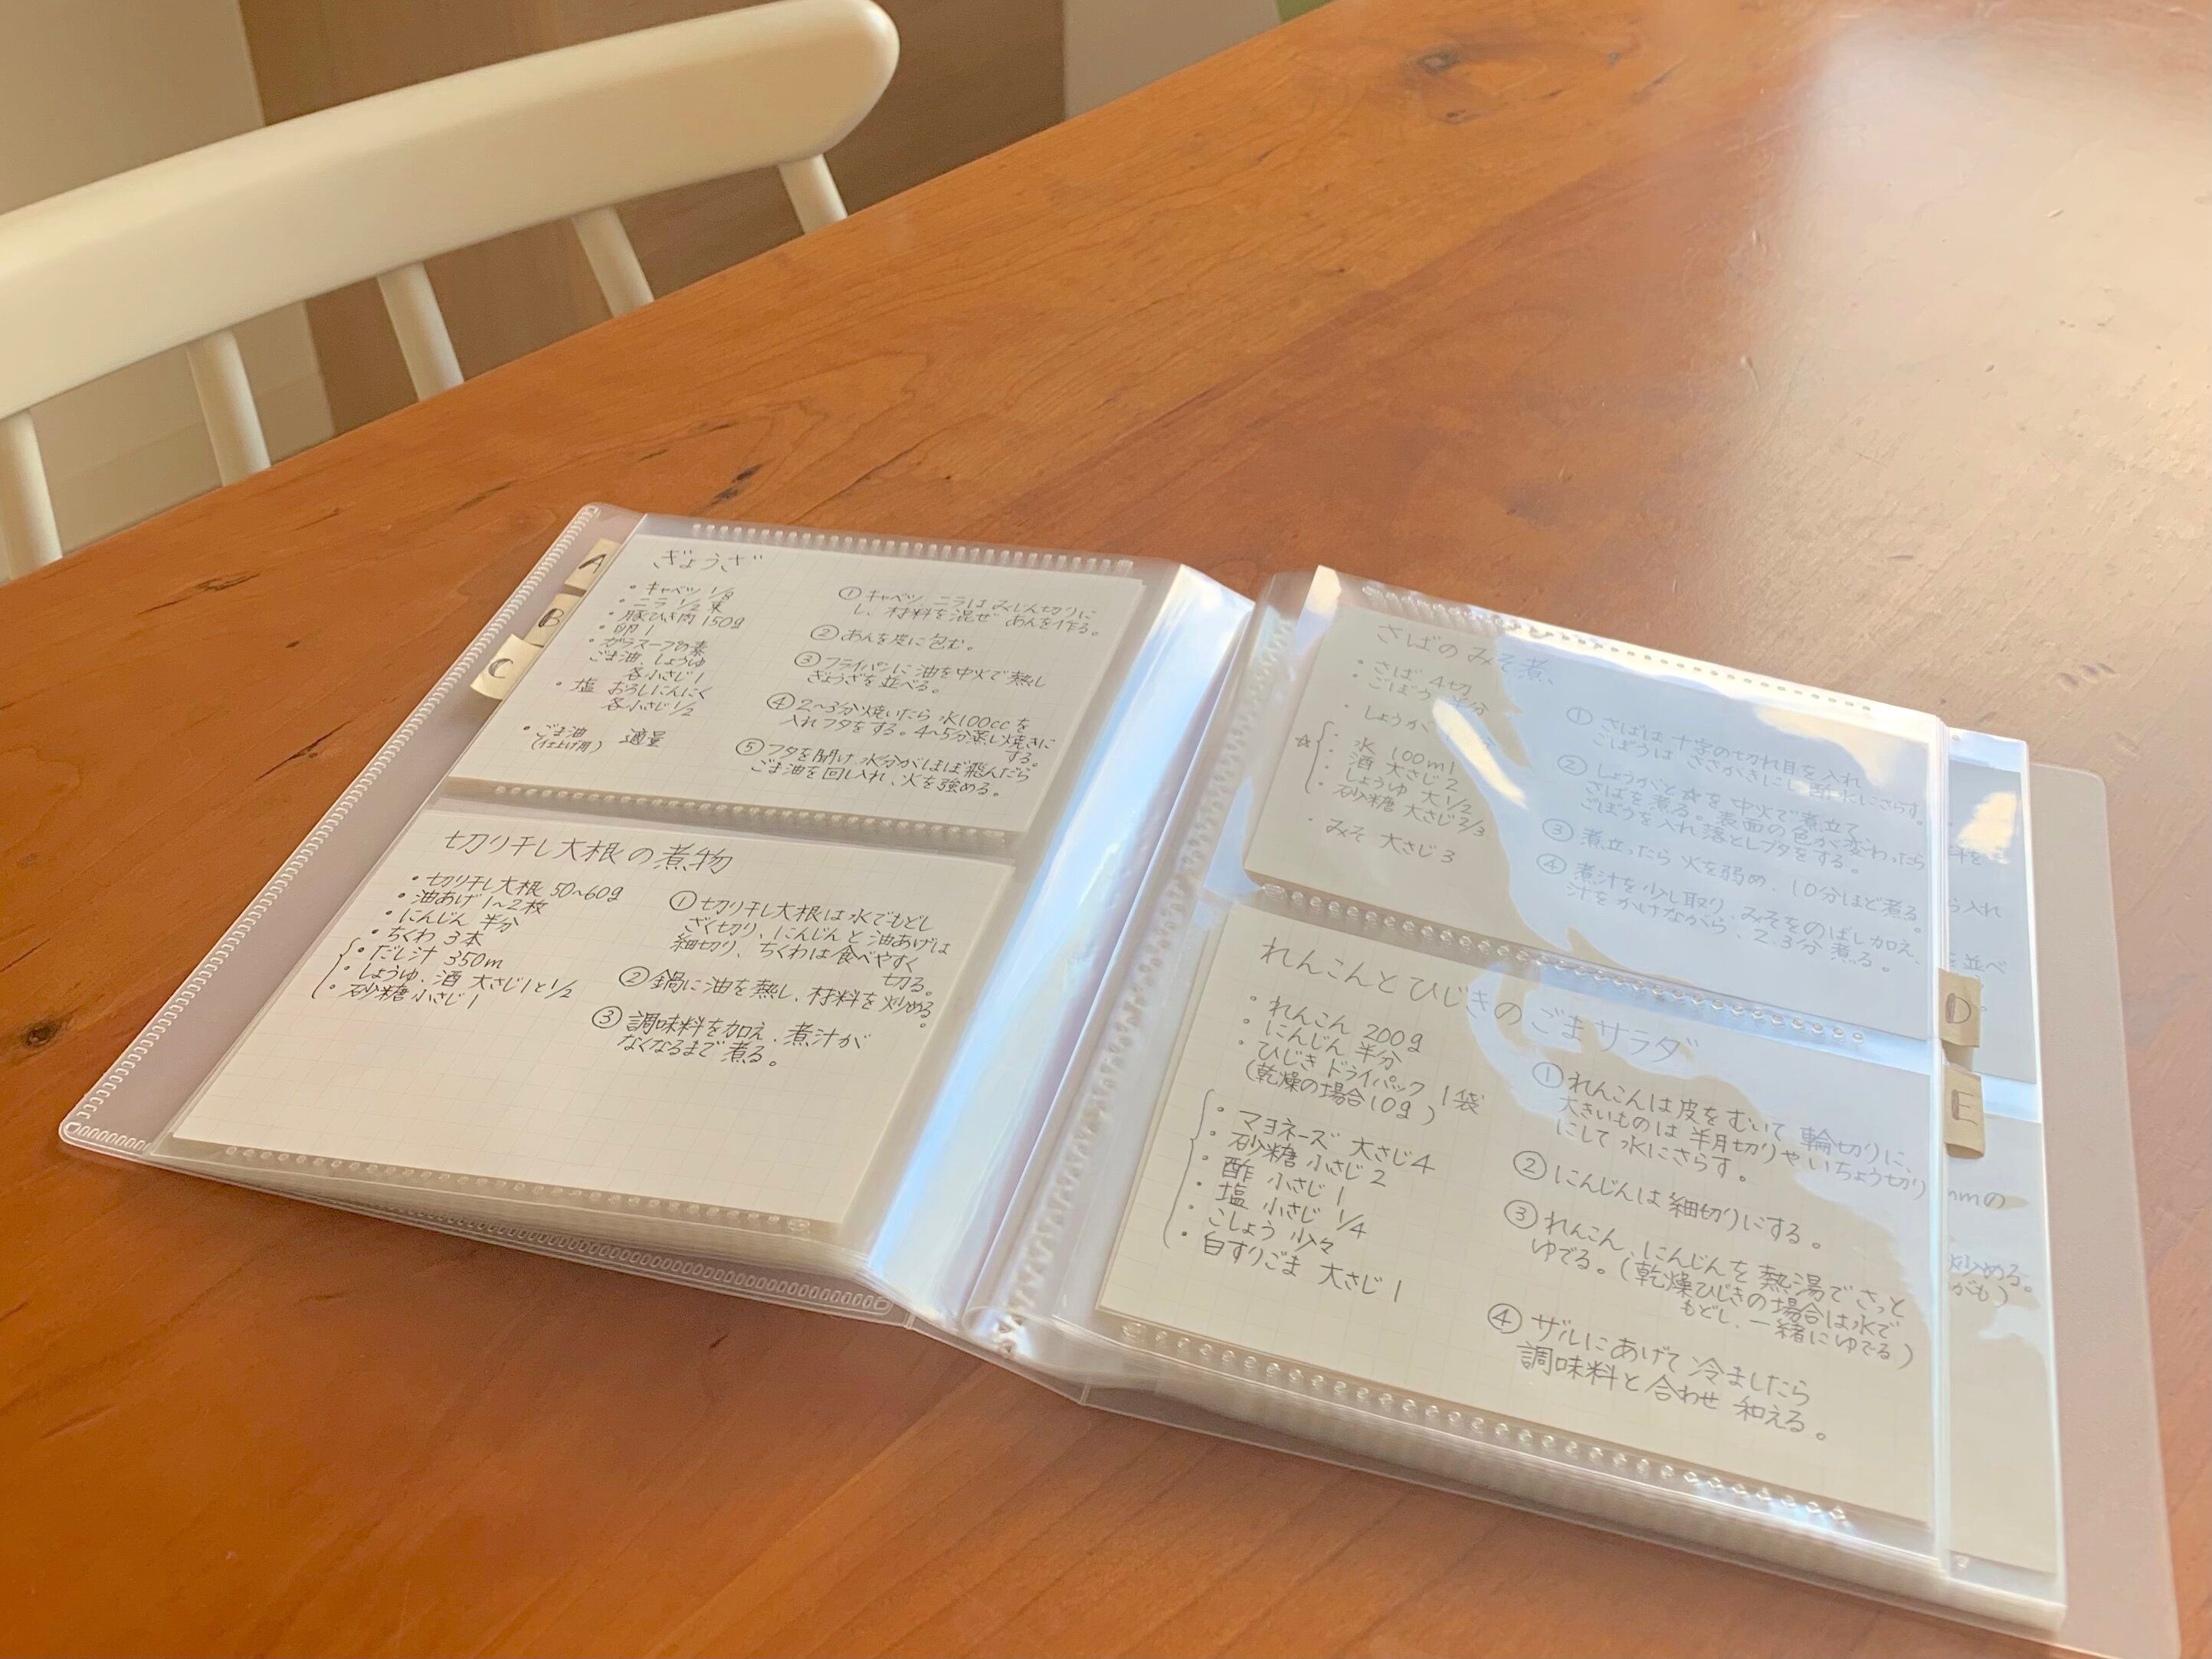 A
B
C
ぎょうざ
・キャベツ 1/8
・ニラ 1/2束
・豚ひき肉 150g
・卵 1
・ガラスープの素
ごま油、しょうゆ
各小さじ1
・塩 おろしにんにく
各小さじ1/2
・ごま油 適量
(仕上げ用)
①キャベツ、ニラはみじん切りに
し、材料を混ぜ あんを作る。
②あんを皮に包む。
③フライパンに油を中火で熱し
ぎょうざを並べる。
④2〜3分焼いたら 水100ccを
入れフタをする。4〜5分蒸し焼きに
する。
⑤フタを開け 水分がほぼ飛んだら
ごま油を回し入れ、火を強める。
切り干し大根の煮物
・切り干し大根 50〜60g
・油あげ 1〜2枚
・にんじん 半分
・ちくわ 3本
・だし汁 350m
・しょうゆ、酒 大さじ1と1/2
・砂糖 小さじ1
①切り干し大根は水でもどし
ざく切り、にんじんと油あげは
細切り、ちくわは食べやすく
切る。
②鍋に油を熱し、材料を炒める
。
③調味料を加え、煮汁が
なくなるまで煮る。
さばのみそ煮
・さば 4切
・ごぼう 半分
・しょうが
☆
・水 100ml
・酒 大さじ2
・しょうゆ 大1/2
・砂糖 大さじ2/3
・みそ 大さじ3
① さばは十字の切れ目を入れ
ごぼうは ささがきにし酢水にさらす。
② しょうがと☆を中火で煮立て
さばを煮る。表面の色が変わったら
ごぼうを入れ落としブタをする。
③ 煮立ったら 火を弱め、10分ほど煮る。
④ 煮汁を少し取り、みそをのばし加え、
汁をかけながら、2.3分煮る。
れんこんとひじきのごまサラダ
・れんこん 200g
・にんじん 半分
・ひじき ドライパック 1袋
(乾燥の場合10g)
・マヨネーズ 大さじ4
・砂糖 小さじ2
・酢 小さじ1
・塩 小さじ 1/4
・こしょう 少々
・白すりごま 大さじ1
①れんこんは皮をむいて 輪切りに、
大きいものは 半月切りや いちょう切り
にして 水にさらす。
②にんじんは細切りにする。
③れんこん、にんじんを熱湯でさっと
ゆでる。(乾燥ひじきの場合は水で
もどし、一緒にゆでる)
④ザルにあげて 冷ましたら
調味料と合わせ 和える。
D
E
料を
ら入れ
を並べ
mmの
炒める。
がも)